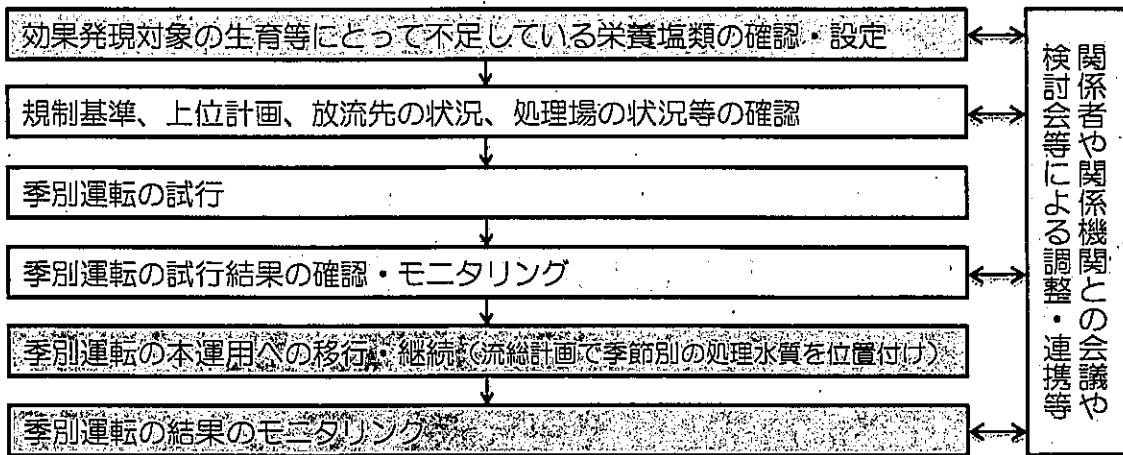 効果発現対象の生育等にとって不足している栄養塩類の確認・設定
規制基準、上位計画、放流先の状況、処理場の状況等の確認
季別運転の試行
季別運転の試行結果の確認・モニタリング
季別運転の本運用への移行・継続（流総計画で季節別の処理水質を位置付け）
季別運転の結果のモニタリング
関係者や関係機関との会議や
検討会等による調整・連携等